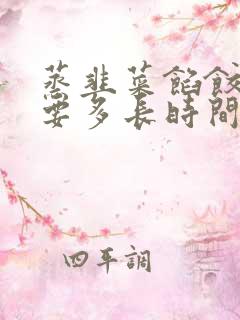 蒸韭菜餡餃
要多長時間
四平調